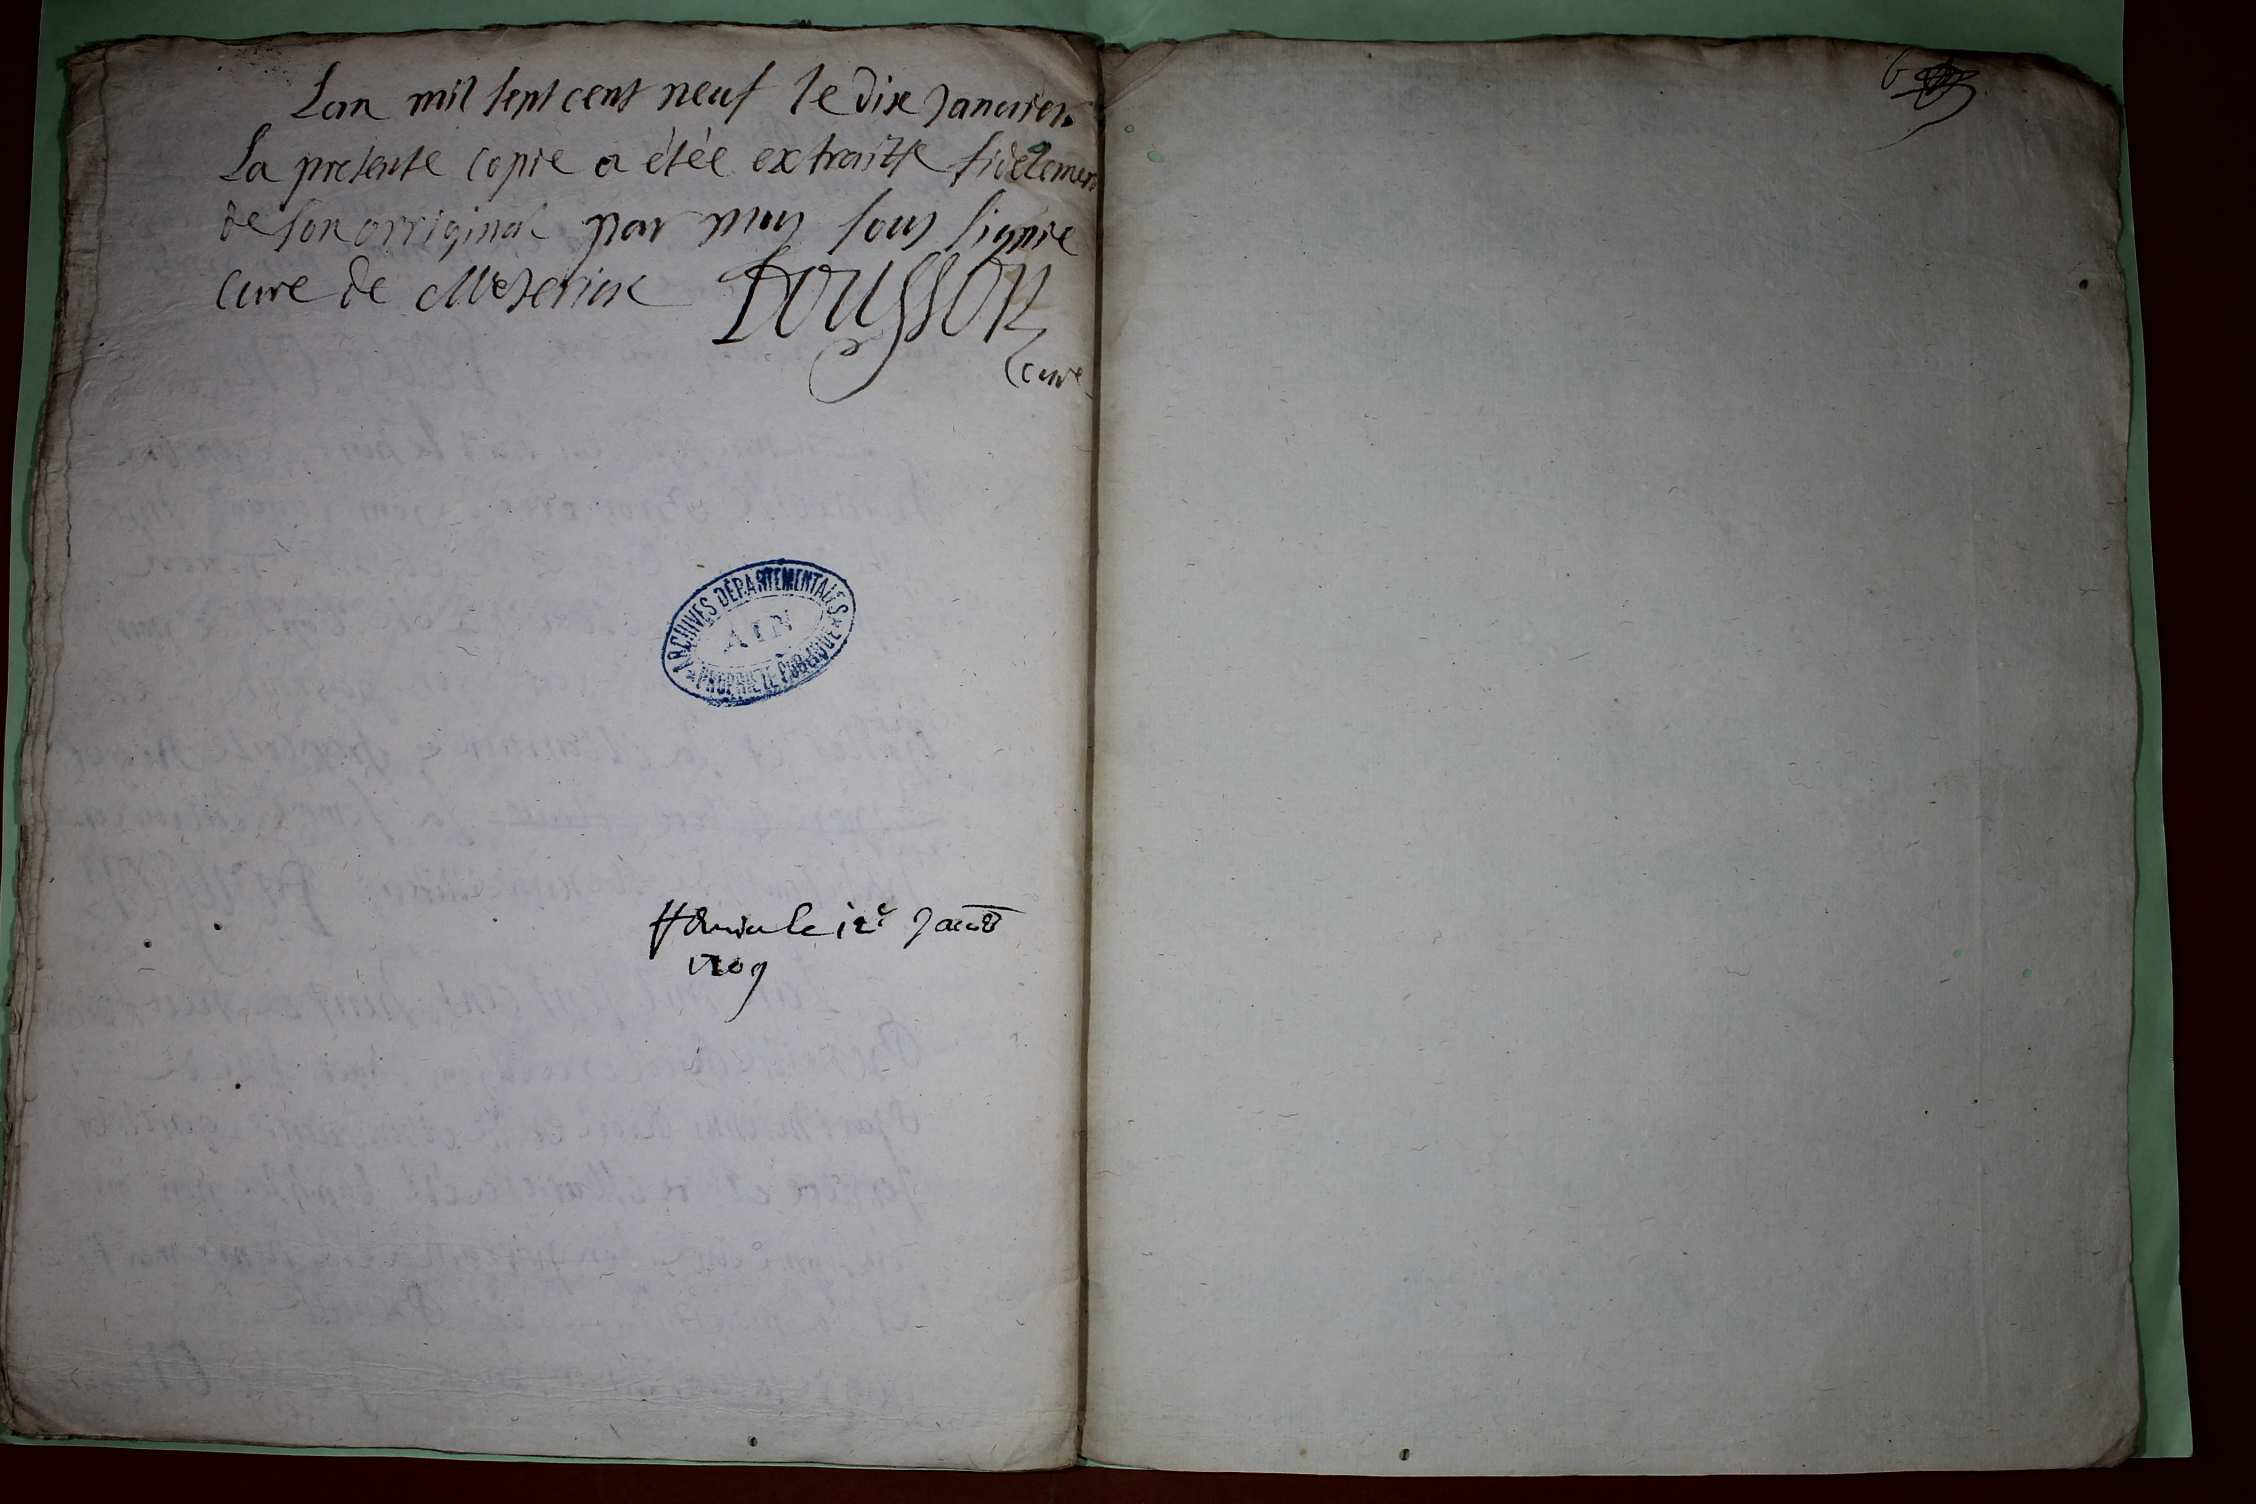 Lan mil sept cent neuf le dixe Janvier.
La presente copie a étée extraitte fidelement
de son orriginal par moy sous signie
cure de Mezeriax
cure
ARCHIVES DÉPARTEMENTALES
AIN
PROPRIÉTÉ PUBLIQUE
le 12e
1709
6